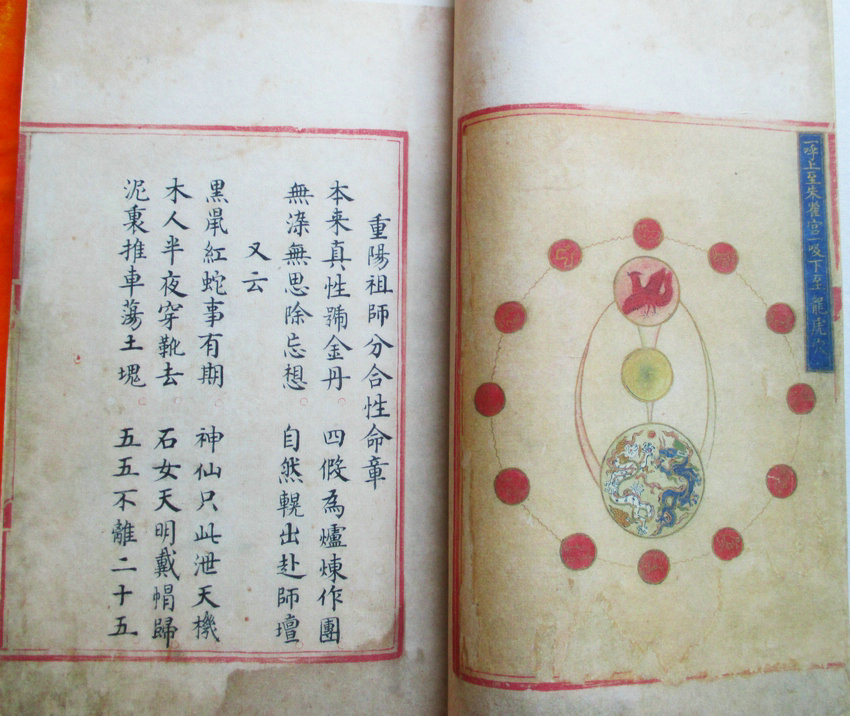 一呼上至朱雀宫一吸下至龍虎穴
重陽祖師分合性命章
本来真性號金丹。四假為爐煉作團
無染無思除忘想。自然輥出赴師壇
又云
黑鼠紅蛇事有期。神仙只此泄天機
木人半夜穿靴去。石女天明戴帽歸
泥裏推車蕩土塊。五五不離二十五